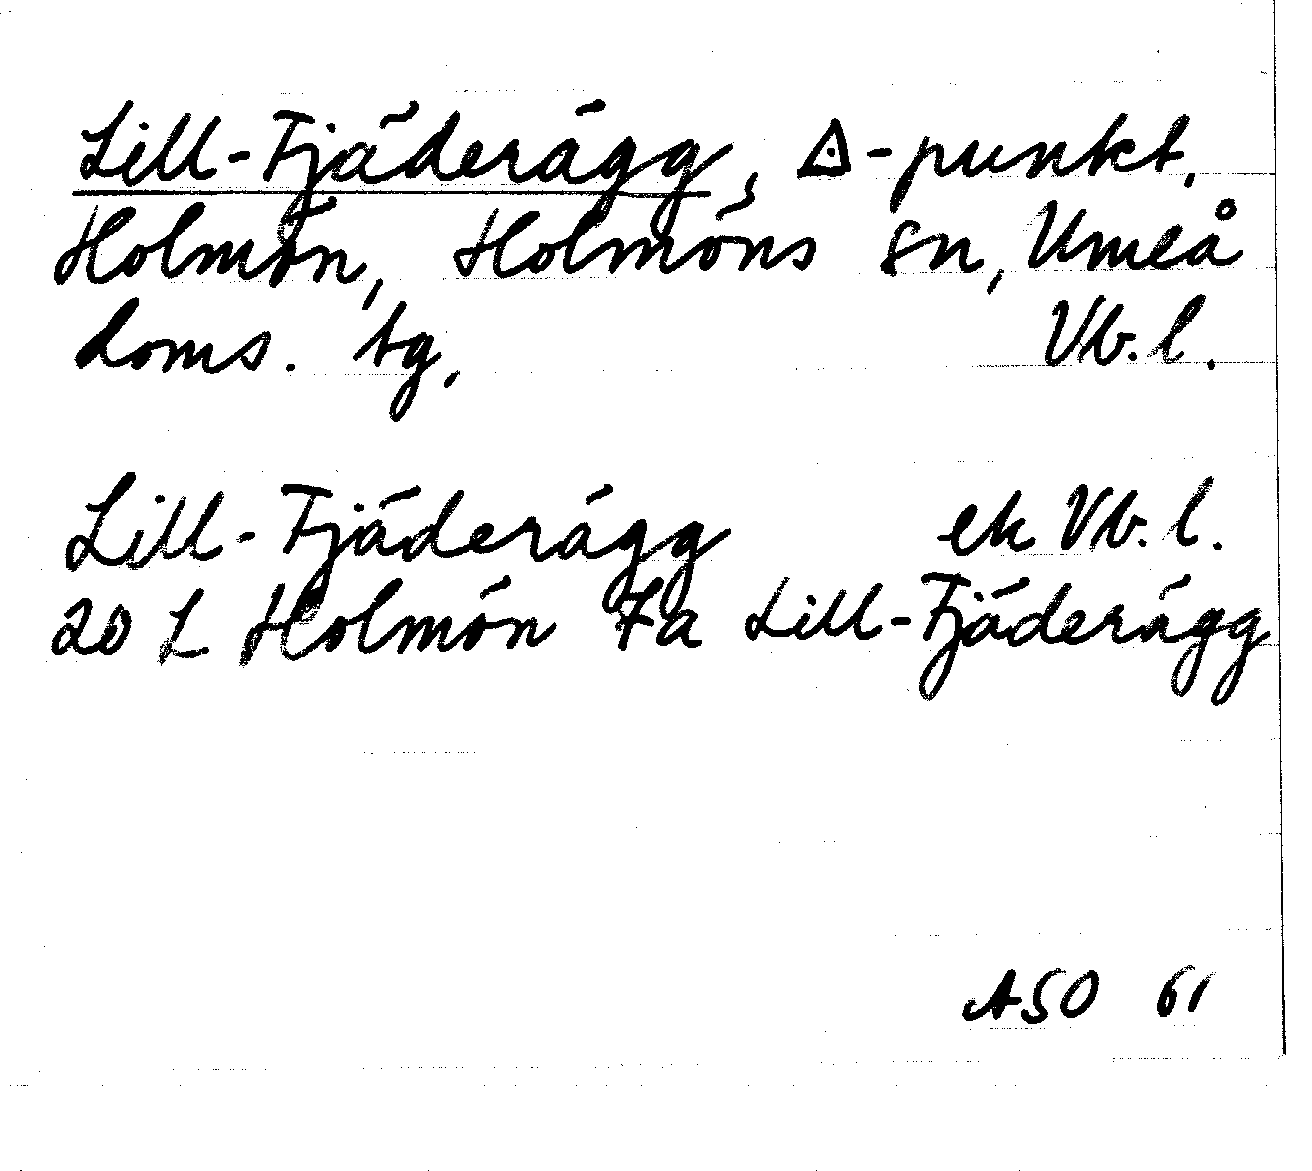 Lill-Fjäderägg, ◬-punkt,
Holmön, Holmöns sn, Umeå
doms. tg, Vb. l.
Lill-Fjäderägg ek Vb. l.
20 L Holmön 7a Lill-Fjäderägg
ASO 61